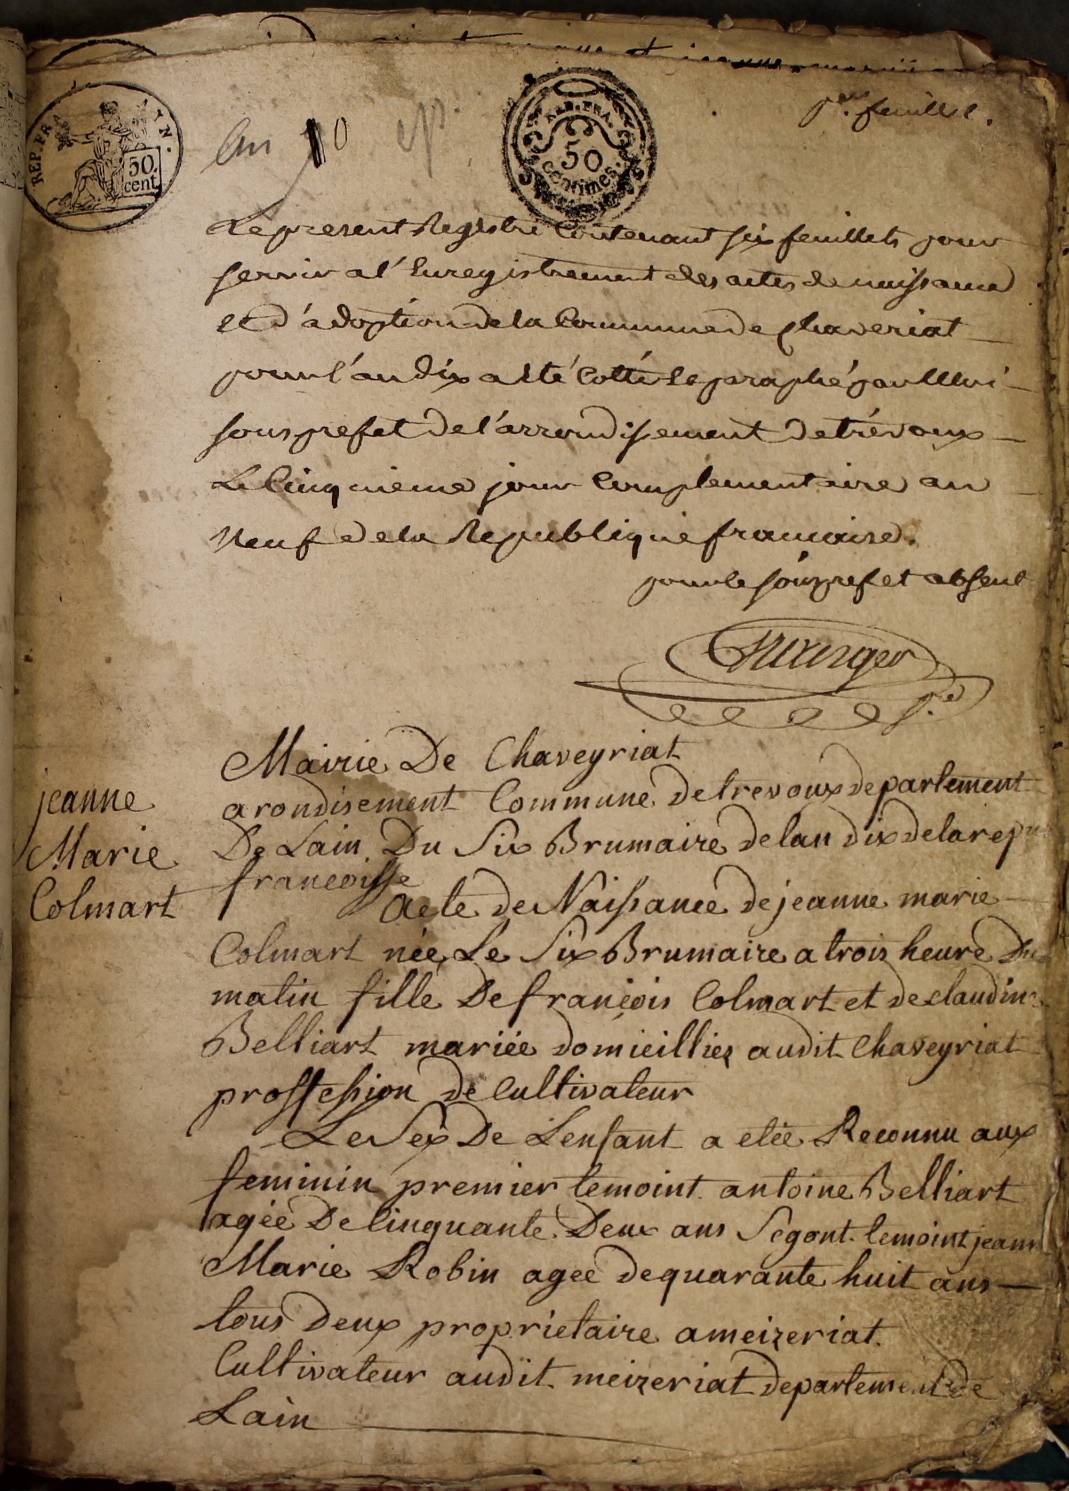 REP. FRA
50 cent
REP. FRA.
50
centimes.
An 10
feuillet.
Le present Registre Contenant six feuillets pour
servir a l'Enregistrement des actes de naissance
et d'adoption de la Commune de Chaveriat
pour l'an dix a été Cotté & paraphé par Nous
sousprefet de l'arrondissement de trévoux
Le Cinquieme jour Complementaire an
Neuf de la Republique francaise.
pour le sousprefet absent
Mairie De Chaveyriat
arondisement Commune de trevoux departement
De Lain Du Six Brumaire de lan dix de la repu
francoisse
jeanne
Marie
Colmart
Acte de Naissance de jeanne marie
Colmart née Le Six Brumaire a trois heure Du
matin fille De françois Colmart et de claudine
Belliart mariée domicilliez audit Chaveyriat
proffession de Cultivateur
Le Sex De Lenfant a etée Reconnu aux
feminin premier temoint antoine Belliart
agée De Cinquante Deux ans Segont temoint jean
Marie Robin agee de quarante huit ans
tous Deux proprietaire a meizeriat.
Cultivateur audit meizeriat departement de
Lain